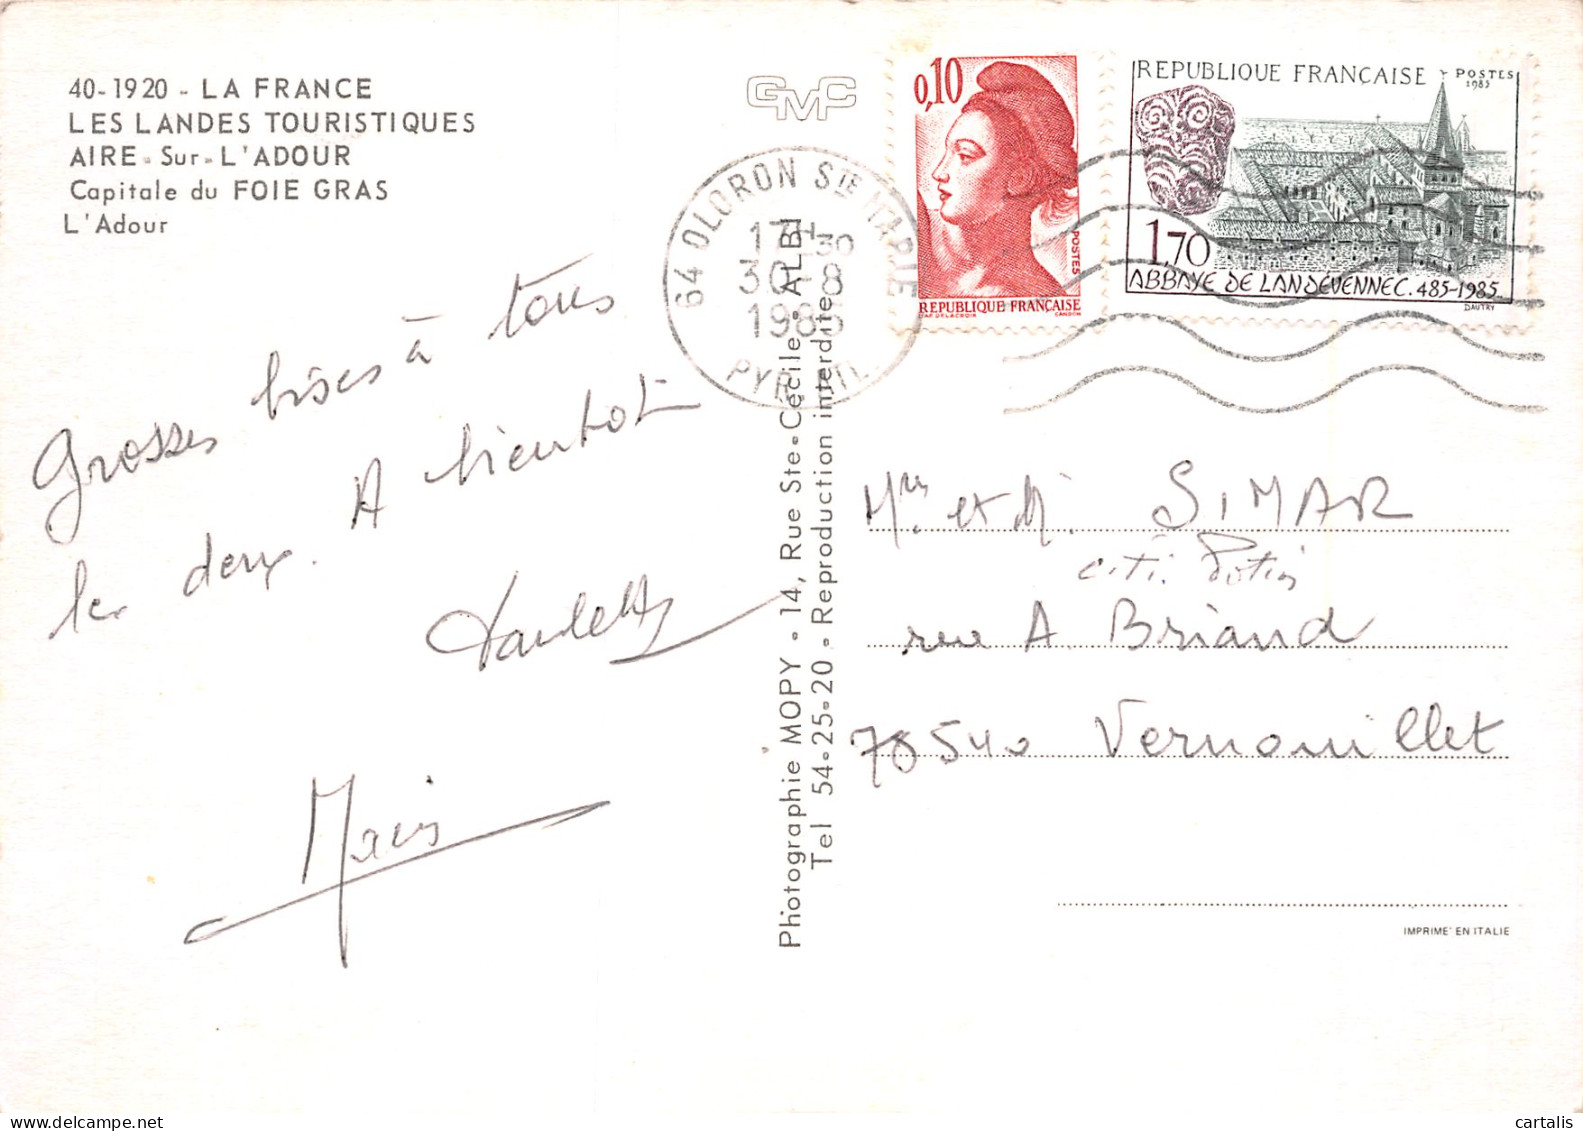 40-1920 - LA FRANCE
LES LANDES TOURISTIQUES
AIRE - Sur - L'ADOUR
Capitale du FOIE GRAS
L'Adour
GMC
64 OLORON STE MARIE
17H30
30-8
1985
PYR. ATL.
0,10
POSTES
REPUBLIQUE FRANÇAISE
D'AP. DELACROIX GANDON
REPUBLIQUE FRANÇAISE POSTES
1985
1,70
ABBAYE DE LANDEVENNEC. 485-1985
DAUTRY
Grosses bises à tous
les deux. A bientot
Paulette
Photographie MOPY - 14, Rue Ste-Cécile - ALBI
Tel 54-25-20 - Reproduction interdite
Mrs et M. SIMAR
cité Potin
rue A. Briand
78540 Vernouillet
IMPRIME' EN ITALIE
cartalis